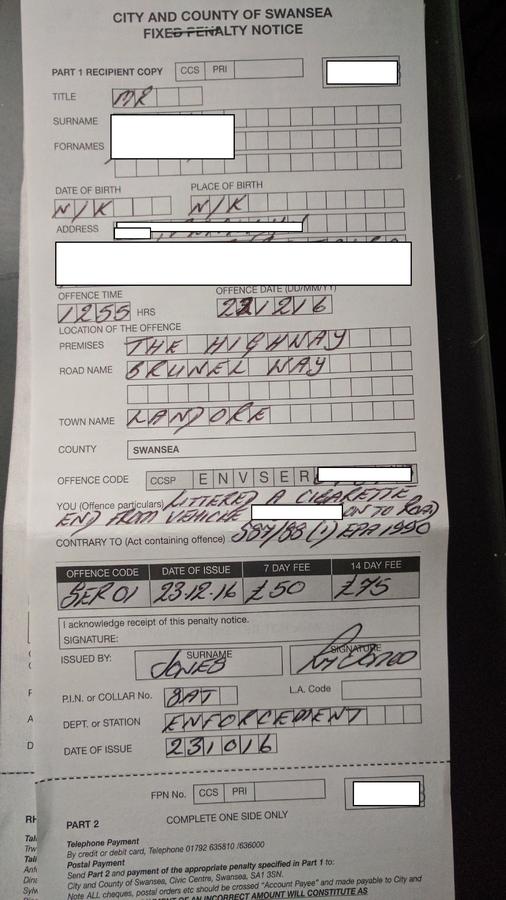 CITY AND COUNTY OF SWANSEA
FIXED PENALTY NOTICE
PART 1 RECIPIENT COPY CCS PRI
TITLE MR
SURNAME
FORNAMES
DATE OF BIRTH PLACE OF BIRTH
N/K N/K
ADDRESS
OFFENCE TIME OFFENCE DATE (DD/MM/YY)
1255 HRS 221216
LOCATION OF THE OFFENCE
PREMISES THE HIGHWAY
ROAD NAME BRUNEL WAY
TOWN NAME LANDORE
COUNTY SWANSEA
OFFENCE CODE CCSP ENVSER
YOU (Offence particulars) LITTERED A CIGARETTE
END FROM VEHICLE ON TO ROAD
CONTRARY TO (Act containing offence) S87/88 (1) EPA 1990
OFFENCE CODE DATE OF ISSUE 7 DAY FEE 14 DAY FEE
SER 01 23.12.16 £50 £75
I acknowledge receipt of this penalty notice.
SIGNATURE:
ISSUED BY: SURNAME SIGNATURE
JONES
P.I.N. or COLLAR No. 8AT L.A. Code
DEPT. or STATION ENFORCEMENT
DATE OF ISSUE 231016
FPN No. CCS PRI
PART 2 COMPLETE ONE SIDE ONLY
Telephone Payment
By credit or debit card, Telephone 01792 635810 /636000
Postal Payment
Send Part 2 and payment of the appropriate penalty specified in Part 1 to:
City and County of Swansea, Civic Centre, Swansea, SA1 3SN.
Note ALL cheques, postal orders etc should be crossed "Account Payee" and made payable to City and
OF AN INCORRECT AMOUNT WILL CONSTITUTE AS